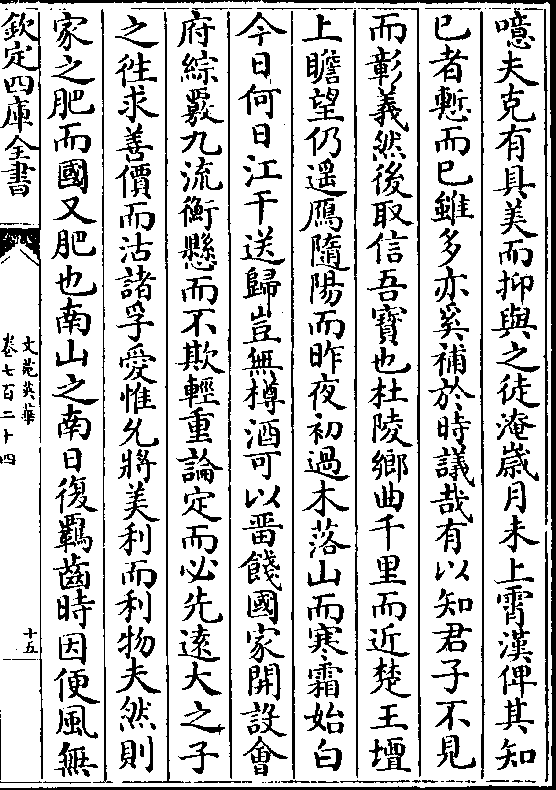 噫夫克有具美而抑與之徒淹歲月未上霄漢俾其知
已者慙而已雖多亦奚補於時議哉有以知君子不見
而彰義然後取信吾寶也杜陵鄉曲千里而近楚王壇
上瞻望仍遥鴈隨陽而昨夜初過木落山而寒霜始白
今日何日江干送歸豈無樽酒可以畱餞國家開設會
府綜覈九流衡懸而不欺輕重論定而必先遠大之子
之徃求善價而沽諸孚愛惟允將美利而利物夫然則
家之肥而國又肥也南山之南日復羈齒時因便風無
欽定四庫全書
文苑英華
卷七百二十四
十五